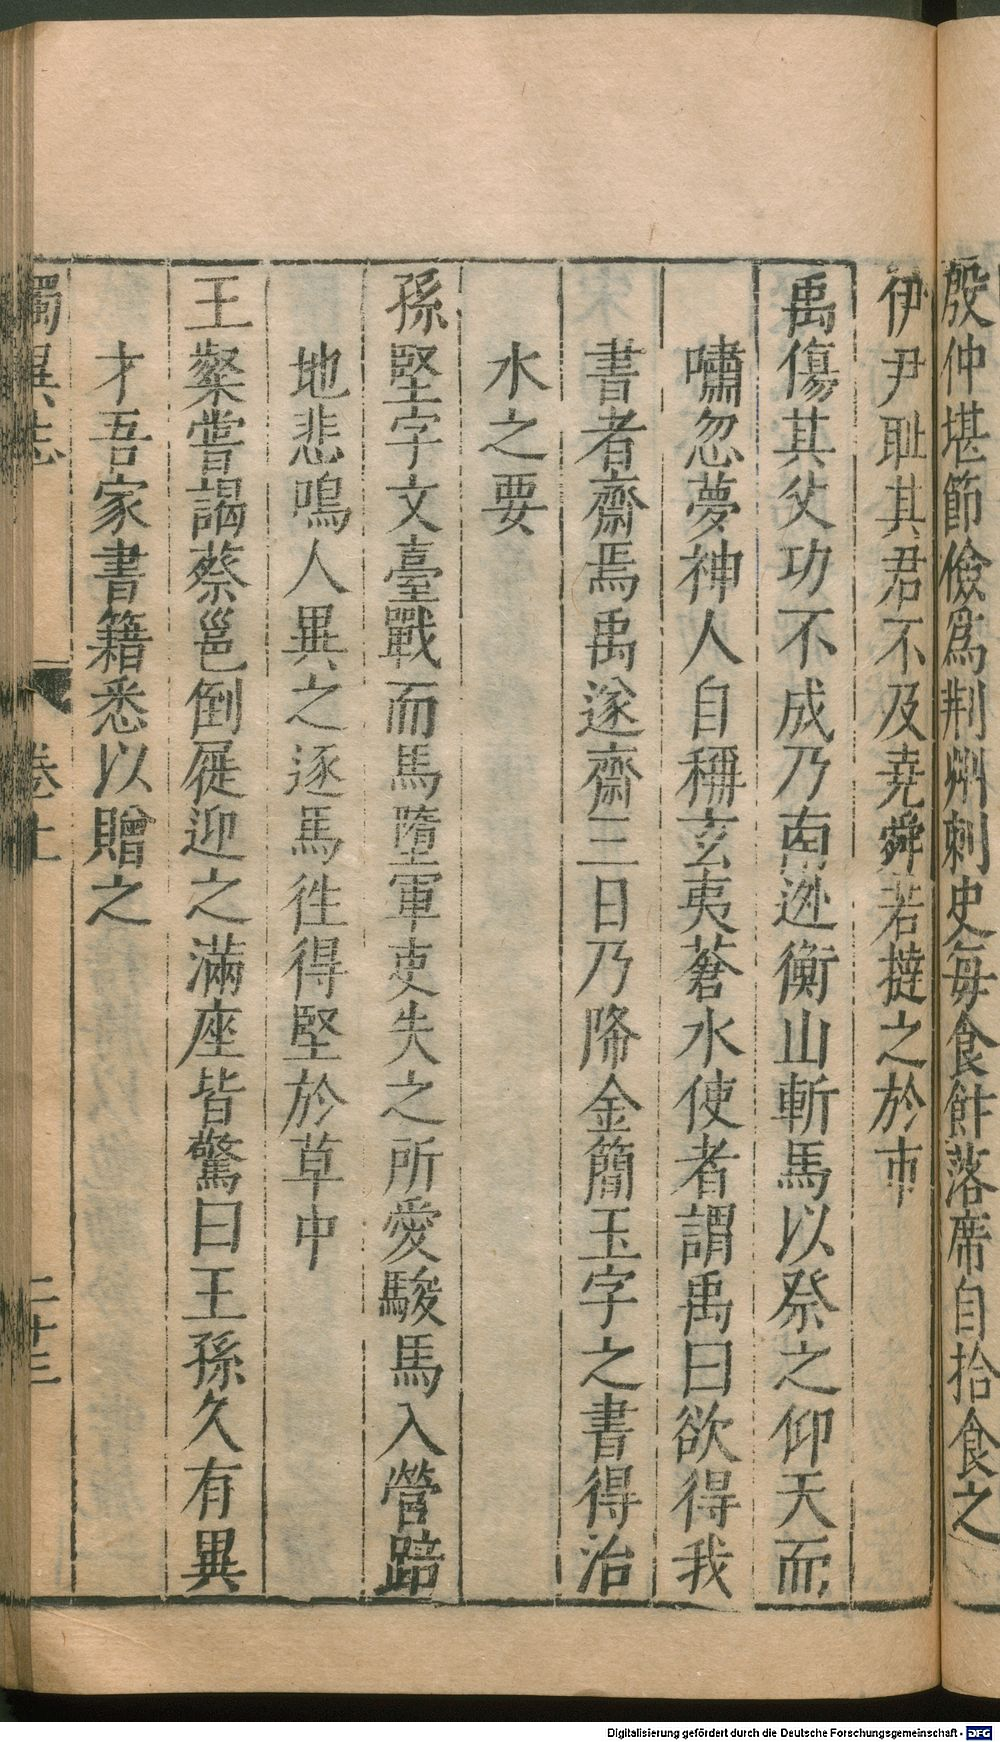 殷仲堪節儉爲荆州刺史每食飰落席自拾食之
伊尹耻其君不及堯舜若撻之於市
禹傷其父功不成乃南逃衡山斬馬以祭之仰天而
嘯忽夢神人自稱玄夷蒼水使者謂禹曰欲得我
書者齋焉禹遂齋三日乃降金簡玉字之書得治
水之要
孫堅字文臺戰而馬墮軍吏失之所愛駿馬入營踣
地悲鳴人異之逐馬徃得堅於草中
王粲嘗謁蔡邕倒屣迎之滿座皆驚曰王孫久有異
才吾家書籍悉以贈之
獨異志 卷上 二十三
Digitalisierung gefördert durch die Deutsche Forschungsgemeinschaft - DFG